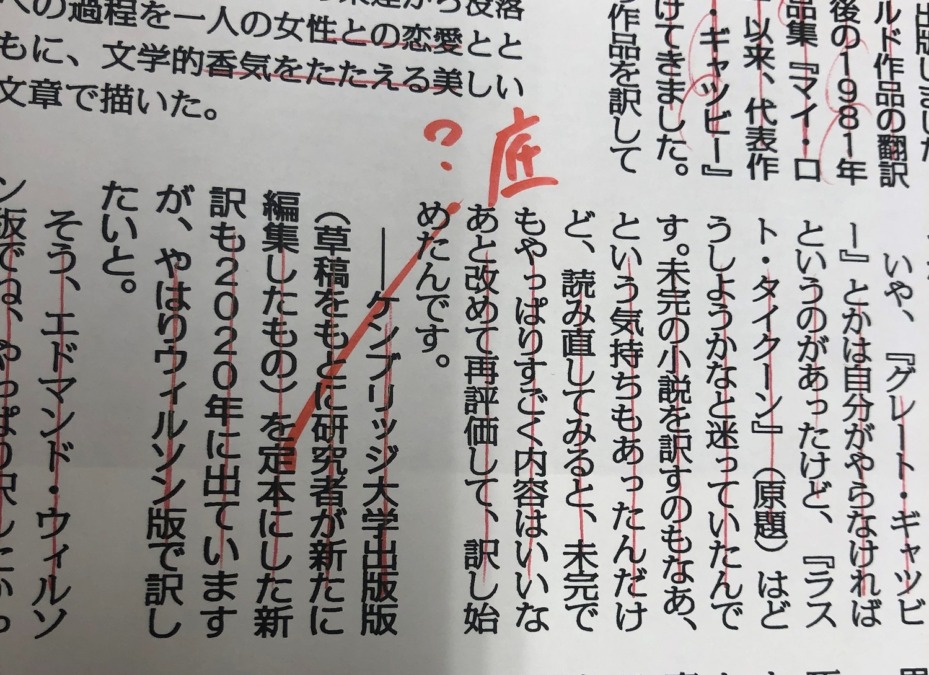 ルド作品の翻訳
後の1981年
品集『マイ・ロ
以来、代表作
・ギャツビー』
けてきました。
作品を訳して
から没落
の過程を一人の女性との恋愛とと
もに、文学的香気をたたえる美しい
文章で描いた。
底
?
いや、『グレート・ギャツビ
ー』とかは自分がやらなければ
というのがあったけど、『ラス
ト・タイクーン』(原題)はど
うしようかなと迷っていたんで
す。未完の小説を訳すのもなあ、
という気持ちもあったんだけ
ど、読み直してみると、未完で
もやっぱりすごく内容はいいな
あと改めて再評価して、訳し始
めたんです。
――ケンブリッジ大学出版版
(草稿をもとに研究者が新たに
編集したもの)を定本にした新
訳も2020年に出ています
が、やはりウィルソン版で訳し
たいと。
そう、エドマンド・ウィルソ
ン版でね、やっぱり訳したかっ